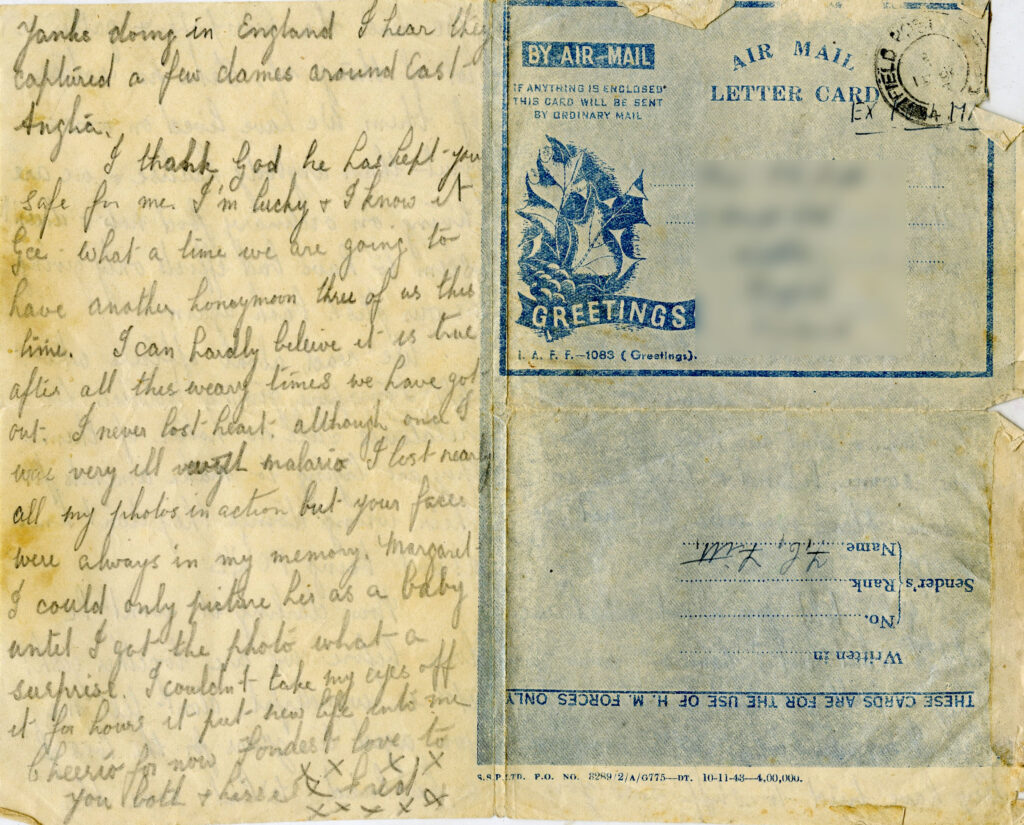 Yanks doing in England I hear they
captured a few dames around East
Anglia.
I thank God he has kept you
safe for me. I'm lucky + I know it
Gee what a time we are going to
have another honeymoon three of us this
time. I can hardly beleive it is true
after all this weary times we have got
out. I never lost heart. although once I
was very ill malaria I lost nearly
all my photos in action but your faces
were always in my memory. Margaret
I could only picture her as a baby
until I got the photo what a
surprise. I couldn't take my eyes off
it for hours it put new life into me
Cheerio for now Fondest love to
you both + Fred
x x x x
x x x x x
BY AIR MAIL
IF ANYTHING IS ENCLOSED
THIS CARD WILL BE SENT
BY ORDINARY MAIL
AIR MAIL
LETTER CARD
FIELD POST
EX
GREETINGS
I. A. F. F.—1083 (Greetings).
THESE CARDS ARE FOR THE USE OF H. M. FORCES ONLY
Written in
Sender's
No.
Rank
Name
S.S.P.LTD. P.O. NO. 3289/2/A/G775—DT. 10-11-43—4,00,000.